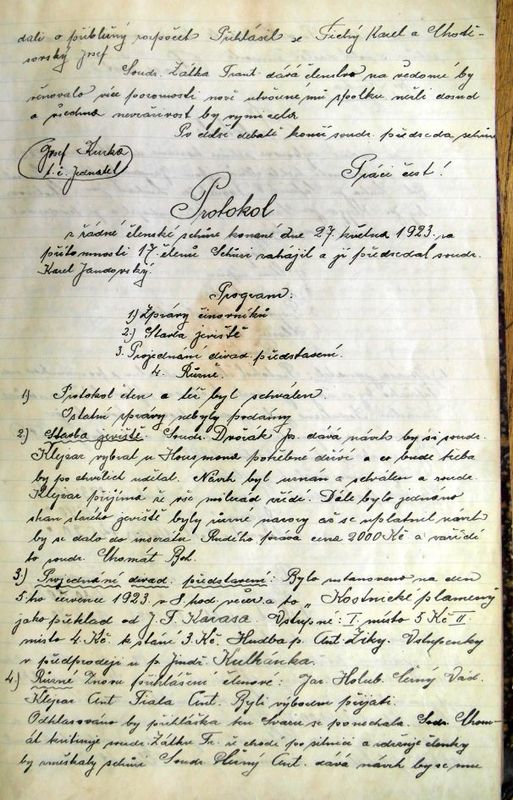 dali o přibližný rozpočet Přihlásil se Tichý Karel a
Josef
Soudr. Zátka Frant. dává členstvo na vědomí by
věnovalo více pozornosti nově utvořenému spolku
a nevraživost by vymizela
Po delší debatě končí soudr. předseda schůzi
Josef Kurka
t. č. jednatel
Práci čest!
Protokol
z řádné členské schůze konané dne 27. května 1923 za
přítomnosti 17 členů Schůzi zahájil a jí předsedal soudr.
Karel Jandovský.
Program:
1) Zprávy činovníků
2.) Stavba jeviště
3. Projednání divad. představení.
4. Různé.
1) Protokol čten a též byl schválen.
Ostatní zprávy nebyly podány
2.) Stavba jeviště. Soudr. Dvořák dává návrh by si soudr.
Klejzar vybral u potřebné dříví a co bude třeba
by po chvílích udělal. Návrh byl uznán a schválen a soudr.
Klejzar přijímá že vše milerád zřídí. Dále bylo jednáno
starého jeviště byly různé názory až se uplatnil návrh
by se dalo do inserátu Rudého práva cena 2000 Kč a zařídí
to soudr. Chomát Boh.
3.) Projednání divad. představení: Bylo ustanoveno na den
5ho července 1923 v 8 hod. večer a to „Kostnické plameny
jako překlad od J. F. Karasa. Vstupné: I. místo 5 Kč II
místo 4. Kč. k stání 3. Kč. Hudba p. Ant. Žíky. Vstupenky
v předprodeji u p. Jindř. Kulhánka.
4.) Různé Znovu přihlášení členové: Jar. Holub. Černý Vád.
Klejzar Ant. Fiala Ant. Byli výborem přijati.
Odhlasováno by přihláška ku Svazu se ponechala. Soudr. Chom-
át kritisuje soudr. Zátku Fr. že chodí po silnici a zdržuje členky
by zmeškaly schůzi Soudr. Černý Ant. dává návrh by se mu